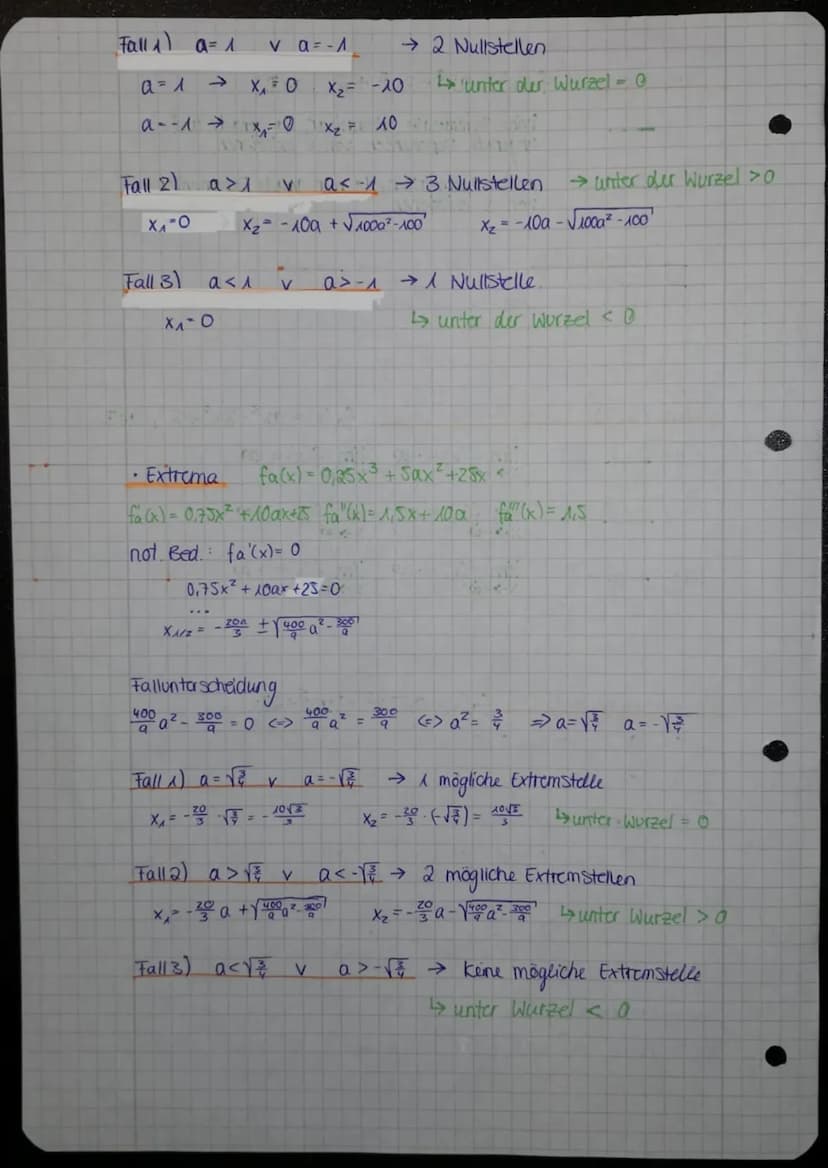 Fall 1) a = 1 v a = -1 → 2 Nullstellen
a = 1 → x₁ = 0 x₂ = -10 ↳ unter der Wurzel = 0
a = -1 → x₁ = 0 x₂ = 10
Fall 2) a > 1 v a < -1 → 3 Nullstellen → unter der Wurzel > 0
x₁ = 0 x₂ = -10a + √(100a² - 100) x₂ = -10a - √(100a² - 100)
Fall 3) a < 1 v a > -1 → 1 Nullstelle
x₁ = 0 ↳ unter der Wurzel < 0
· Extrema fa(x) = 0,25x³ + 5ax² + 25x
fa'(x) = 0,75x² + 10ax + 25 fa''(x) = 1,5x + 10a fa'''(x) = 1,5
not. Bed.: fa'(x) = 0
0,75x² + 10ax + 25 = 0
...
x₁/₂ = -20a/3 ± √(400/9 a² - 300/9)
Fallunterscheidung
400/9 a² - 300/9 = 0 <=> 400/9 a² = 300/9 <=> a² = 3/4 => a = √(3/4) a = -√(3/4)
Fall 1) a = √(3/4) v a = -√(3/4) → 1 mögliche Extremstelle
x₁ = -20/3 · √(3/4) = -10√3/3 x₂ = -20/3 · (-√(3/4)) = 10√3/3 ↳ unter Wurzel = 0
Fall 2) a > √(3/4) v a < -√(3/4) → 2 mögliche Extremstellen
x₁ = -20/3 a + √(400/9 a² - 300/9) x₂ = -20/3 a - √(400/9 a² - 300/9) ↳ unter Wurzel > 0
Fall 3) a < √(3/4) v a > -√(3/4) → Keine mögliche Extremstelle
↳ unter Wurzel < 0